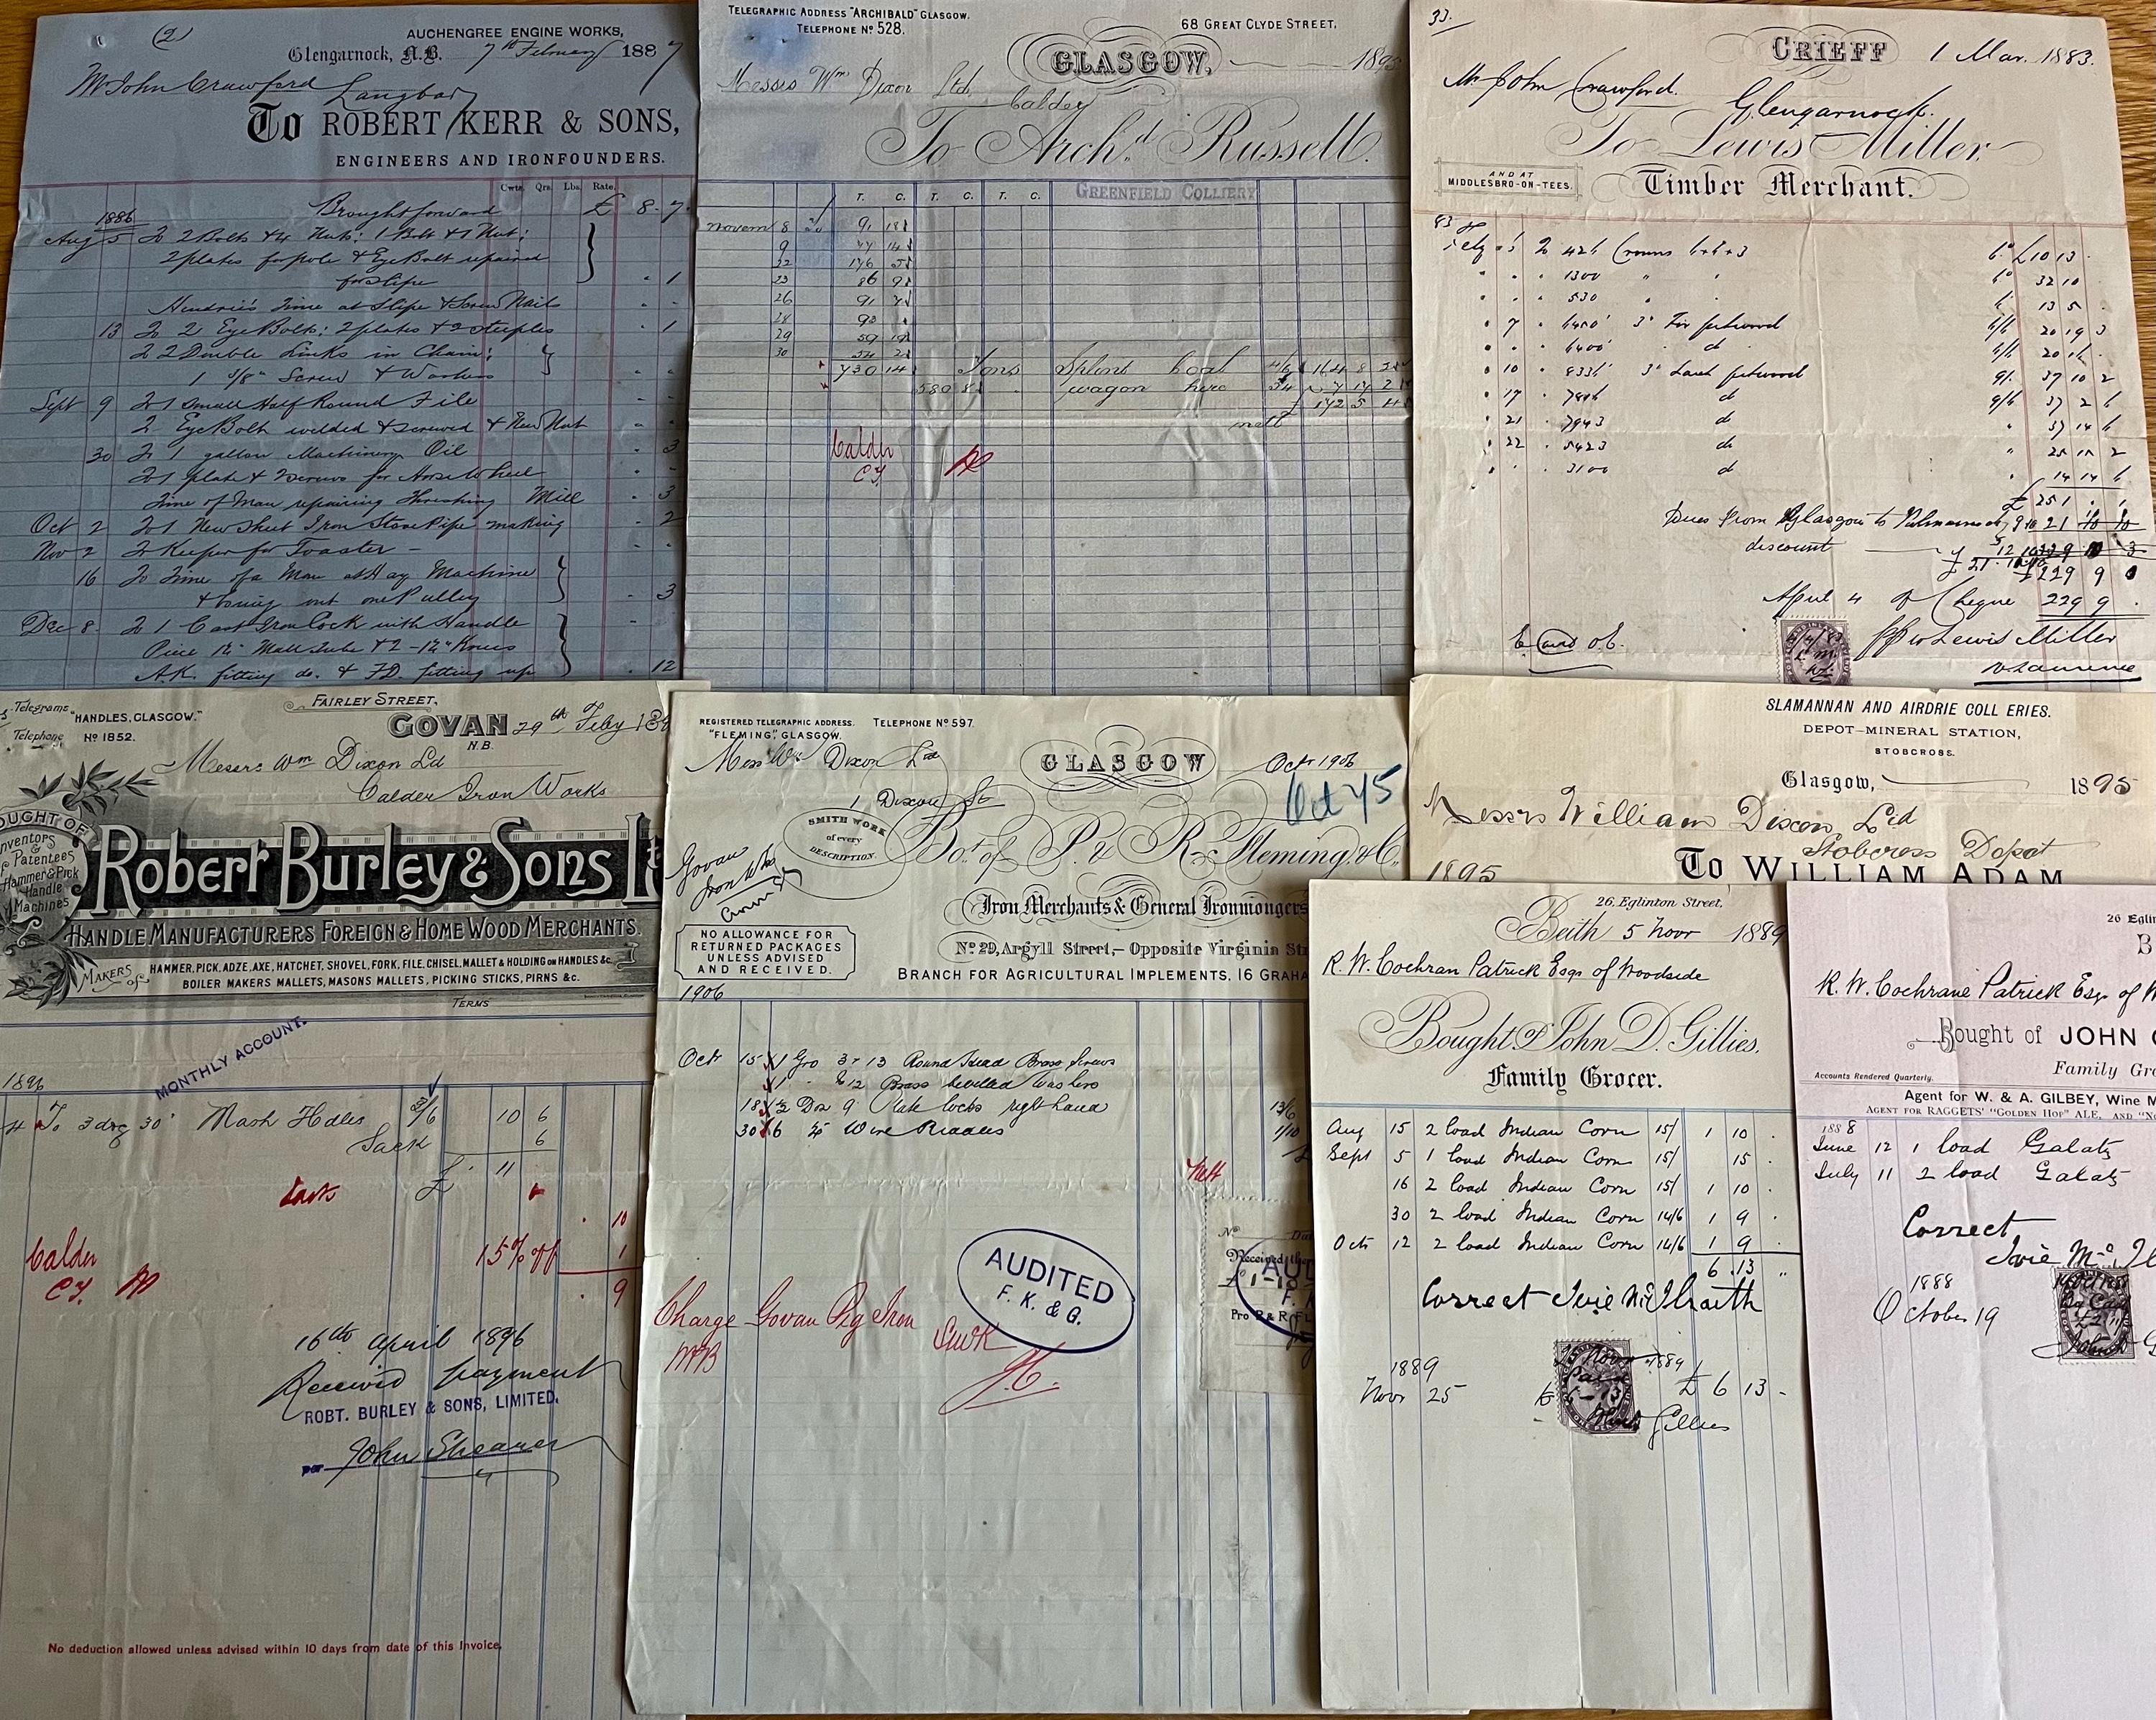 (2)
AUCHENGREE ENGINE WORKS,
Glengarnock, N.B. 7th February 1887
Mr John Crawford
Langbar
To ROBERT KERR & SONS,
ENGINEERS AND IRONFOUNDERS.
Cwts. Qrs. Lbs. Rate.
1886 Brought forward £ 8 . 7
Aug 5 To 2 Bolts & 4 Nuts; 1 Bolt & 1 Nut;
2 plates for pole & Eye Bolt repaired
for Slipe . 1
Hendrie's Time at Slipe & Screw Nails
13 To 2 Eye Bolts; 2 plates & 2 steeples . 1
To 2 Double Links in Chain;
1 5/8" Screw & Washers
Sept 9 To 1 Small Half Round File
2 Eye Bolts welded & screwed & New Nut
30 To 1 gallon Machinery Oil . 3
To 1 plate & 2 screws for Horse wheel
Time of Man repairing Threshing Mill . 3
Oct 2 To 1 New Sheet Iron Stove Pipe making . 2
Nov 2 To Keeper for Toaster
16 To Time of a Man at Hay Machine
& boring out one Pulley . 3
Dec 8 To 1 Cast Iron Cock with Handle
Piece 1½" Mall Tube & 2 - 1½" Knees
A.K. fitting do. & F.D. fitting up . 12
TELEGRAPHIC ADDRESS "ARCHIBALD" GLASGOW.
TELEPHONE No 528.
68 GREAT CLYDE STREET,
GLASGOW, 1895
Messrs Wm Dixon Ltd,
Calder
To Archd. Russell.
GREENFIELD COLLIERY
T. C. T. C. T. C.
Novem 8 91 18
9 77 14
22 176 5
23 86 9
26 91 7
28 93
29 59 19
30 54 2
730 14 Tons Splint Coal 4/6 164 8 2
580 8 wagon hire 3d 7 17 2
172 5 4
nett
Calder
CY.
33.
CRIEFF 1 Mar. 1883.
Mr John Crawford.
Glengarnock.
To Lewis Miller
AND AT
MIDDLESBRO-ON-TEES.
Timber Merchant.
83
5 To 426 Crowns 6+6+3 6d £10 13
1300 " 6d 32 10
530 6. 13 5
7 6450' 3" Fir pitwood 6/6 20 19 3
6400' d 6/6 20 16
10 8336' 3" Larch pitwood 9/. 37 10 2
17 7806 d 9/6 37 2 6
21 7943 d " 37 14 6
22 5423 d " 25 15 2
3100 d " 14 14 6
£ 251
Dues from Glasgow to Kilmarnock
discount
£229 9 0
April 4 By Cheque 229 9
E and O.E.
pp Lewis Miller
Telegrams "HANDLES, GLASGOW."
Telephone No 1852.
FAIRLEY STREET,
GOVAN 29th Feby 189
N.B.
Messrs Wm Dixon Ld
Calder Iron Works
BOUGHT OF
Inventors
& Patentees
of Hammer & Pick
Handle
Machines
Robert Burley & Sons Ltd
HANDLE MANUFACTURERS FOREIGN & HOME WOOD MERCHANTS.
MAKERS of HAMMER, PICK, ADZE, AXE, HATCHET, SHOVEL, FORK, FILE, CHISEL, MALLET & HOLDING ON HANDLES &c.
BOILER MAKERS MALLETS, MASONS MALLETS, PICKING STICKS, PIRNS &c.
TERMS
MONTHLY ACCOUNT.
1896
4 To 3 doz 30" Mash Hdles 3/6 10 6
Sack 6
£ 11
. 10
15% off 1
. 9
Calder
CY.
16th April 1896
Received payment
ROBT. BURLEY & SONS, LIMITED,
per John Shearer
No deduction allowed unless advised within 10 days from date of this Invoice.
REGISTERED TELEGRAPHIC ADDRESS. TELEPHONE No 597.
"FLEMING", GLASGOW.
GLASGOW Octr 1906
Mess Wm Dixon Ltd
1 Dixon St
Oct 45
SMITH WORK
of every
DESCRIPTION.
Bot. of P. & R. Fleming & Co.
Govan
Iron Wks
Iron Merchants & General Ironmongers
NO ALLOWANCE FOR
RETURNED PACKAGES
UNLESS ADVISED
AND RECEIVED.
No 29, Argyll Street,- Opposite Virginia St
BRANCH FOR AGRICULTURAL IMPLEMENTS, 16 GRAHA
1906
Octr 15 1 Gro 3 & 13 Round Head Brass Screws
1 " & 12 Brass bevelled washers
18 ½ Doz 9" Plate locks right hand 13/6
30 6 Wire Riddles 1/10
Nett
No Dat
Received the
£1-10
Pro P. & R. FL
AUDITED
F. K. & G.
Charge Govan Pig Iron
SLAMANNAN AND AIRDRIE COLL ERIES.
DEPOT-MINERAL STATION,
STOBCROSS.
Glasgow, 1895
Messrs William Dixon, Ltd
Stobcross Depot
1895
To WILLIAM ADAM
26, Eglinton Street,
Beith 5 Novr 1889
R. W. Cochran Patrick Esqr of Woodside
Bought of John D. Gillies.
Family Grocer.
Aug 15 2 load Indian Corn 15/ 1 10 .
Sept 5 1 load Indian Corn 15/ 15 .
16 2 load Indian Corn 15/ 1 10 .
30 2 load Indian Corn 14/6 1 9 .
Octr 12 2 load Indian Corn 14/6 1 9 .
6 . 13 "
Correct Ivie McIlraith
1889
Novr 25 £ 6 13 -
Novr 1889
Paid
£6-13
Gillies
26 Eglin
B
R. W. Cochrane Patrick Esqr of W
Bought of JOHN
Family Gro
Accounts Rendered Quarterly.
Agent for W. & A. GILBEY, Wine M
AGENT FOR RAGGETS' "GOLDEN HOP" ALE, AND "NO
1888
June 12 1 load Galatz
July 11 2 load Galatz
Correct
Ivie McIl
1888
October 19